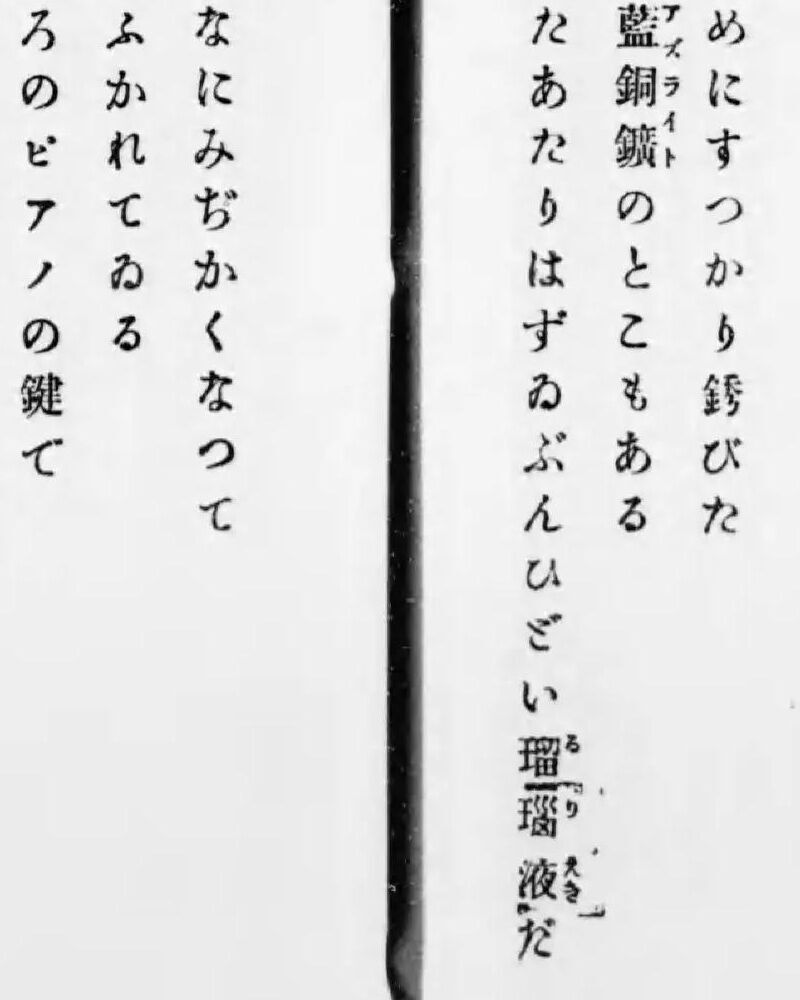 めにすつかり銹びた
藍銅鑛のとこもある
アズライト
たあたりはずゐぶんひどい瑠瑙液だ
るりえき
なにみぢかくなつて
ふかれてゐる
ろのピアノの鍵で